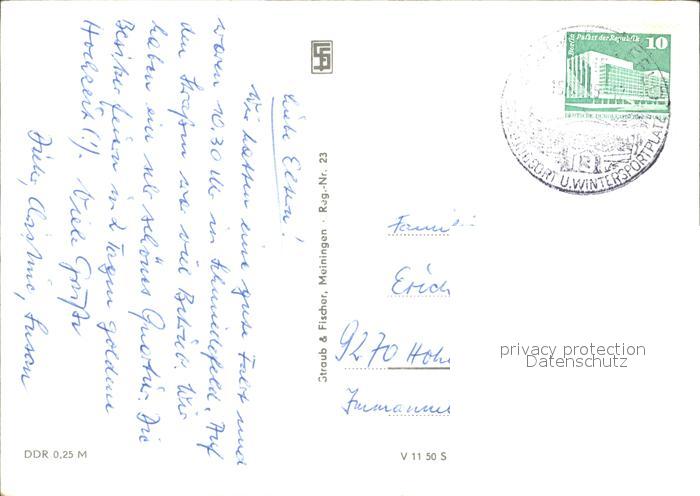 Liebe Eltern!
Wir hatten eine gute Fahrt und
waren 10.30 Uhr in Schmiedefeld. Auf
den Straßen war viel Betrieb. Wir
haben ein sehr schönes Quartier. Die
Besitzer feiern in 2 Tagen goldene
Hochzeit (!). Viele Grüße
Christine, Susann
Straub & Fischer, Meiningen · Reg.-Nr. 23
DDR 0,25 M
V 11 50 S
Berlin Palast der Republik
10
U. WINTERSPORTPLATZ
Erich
9270 Hohe
privacy protection
Datenschutz